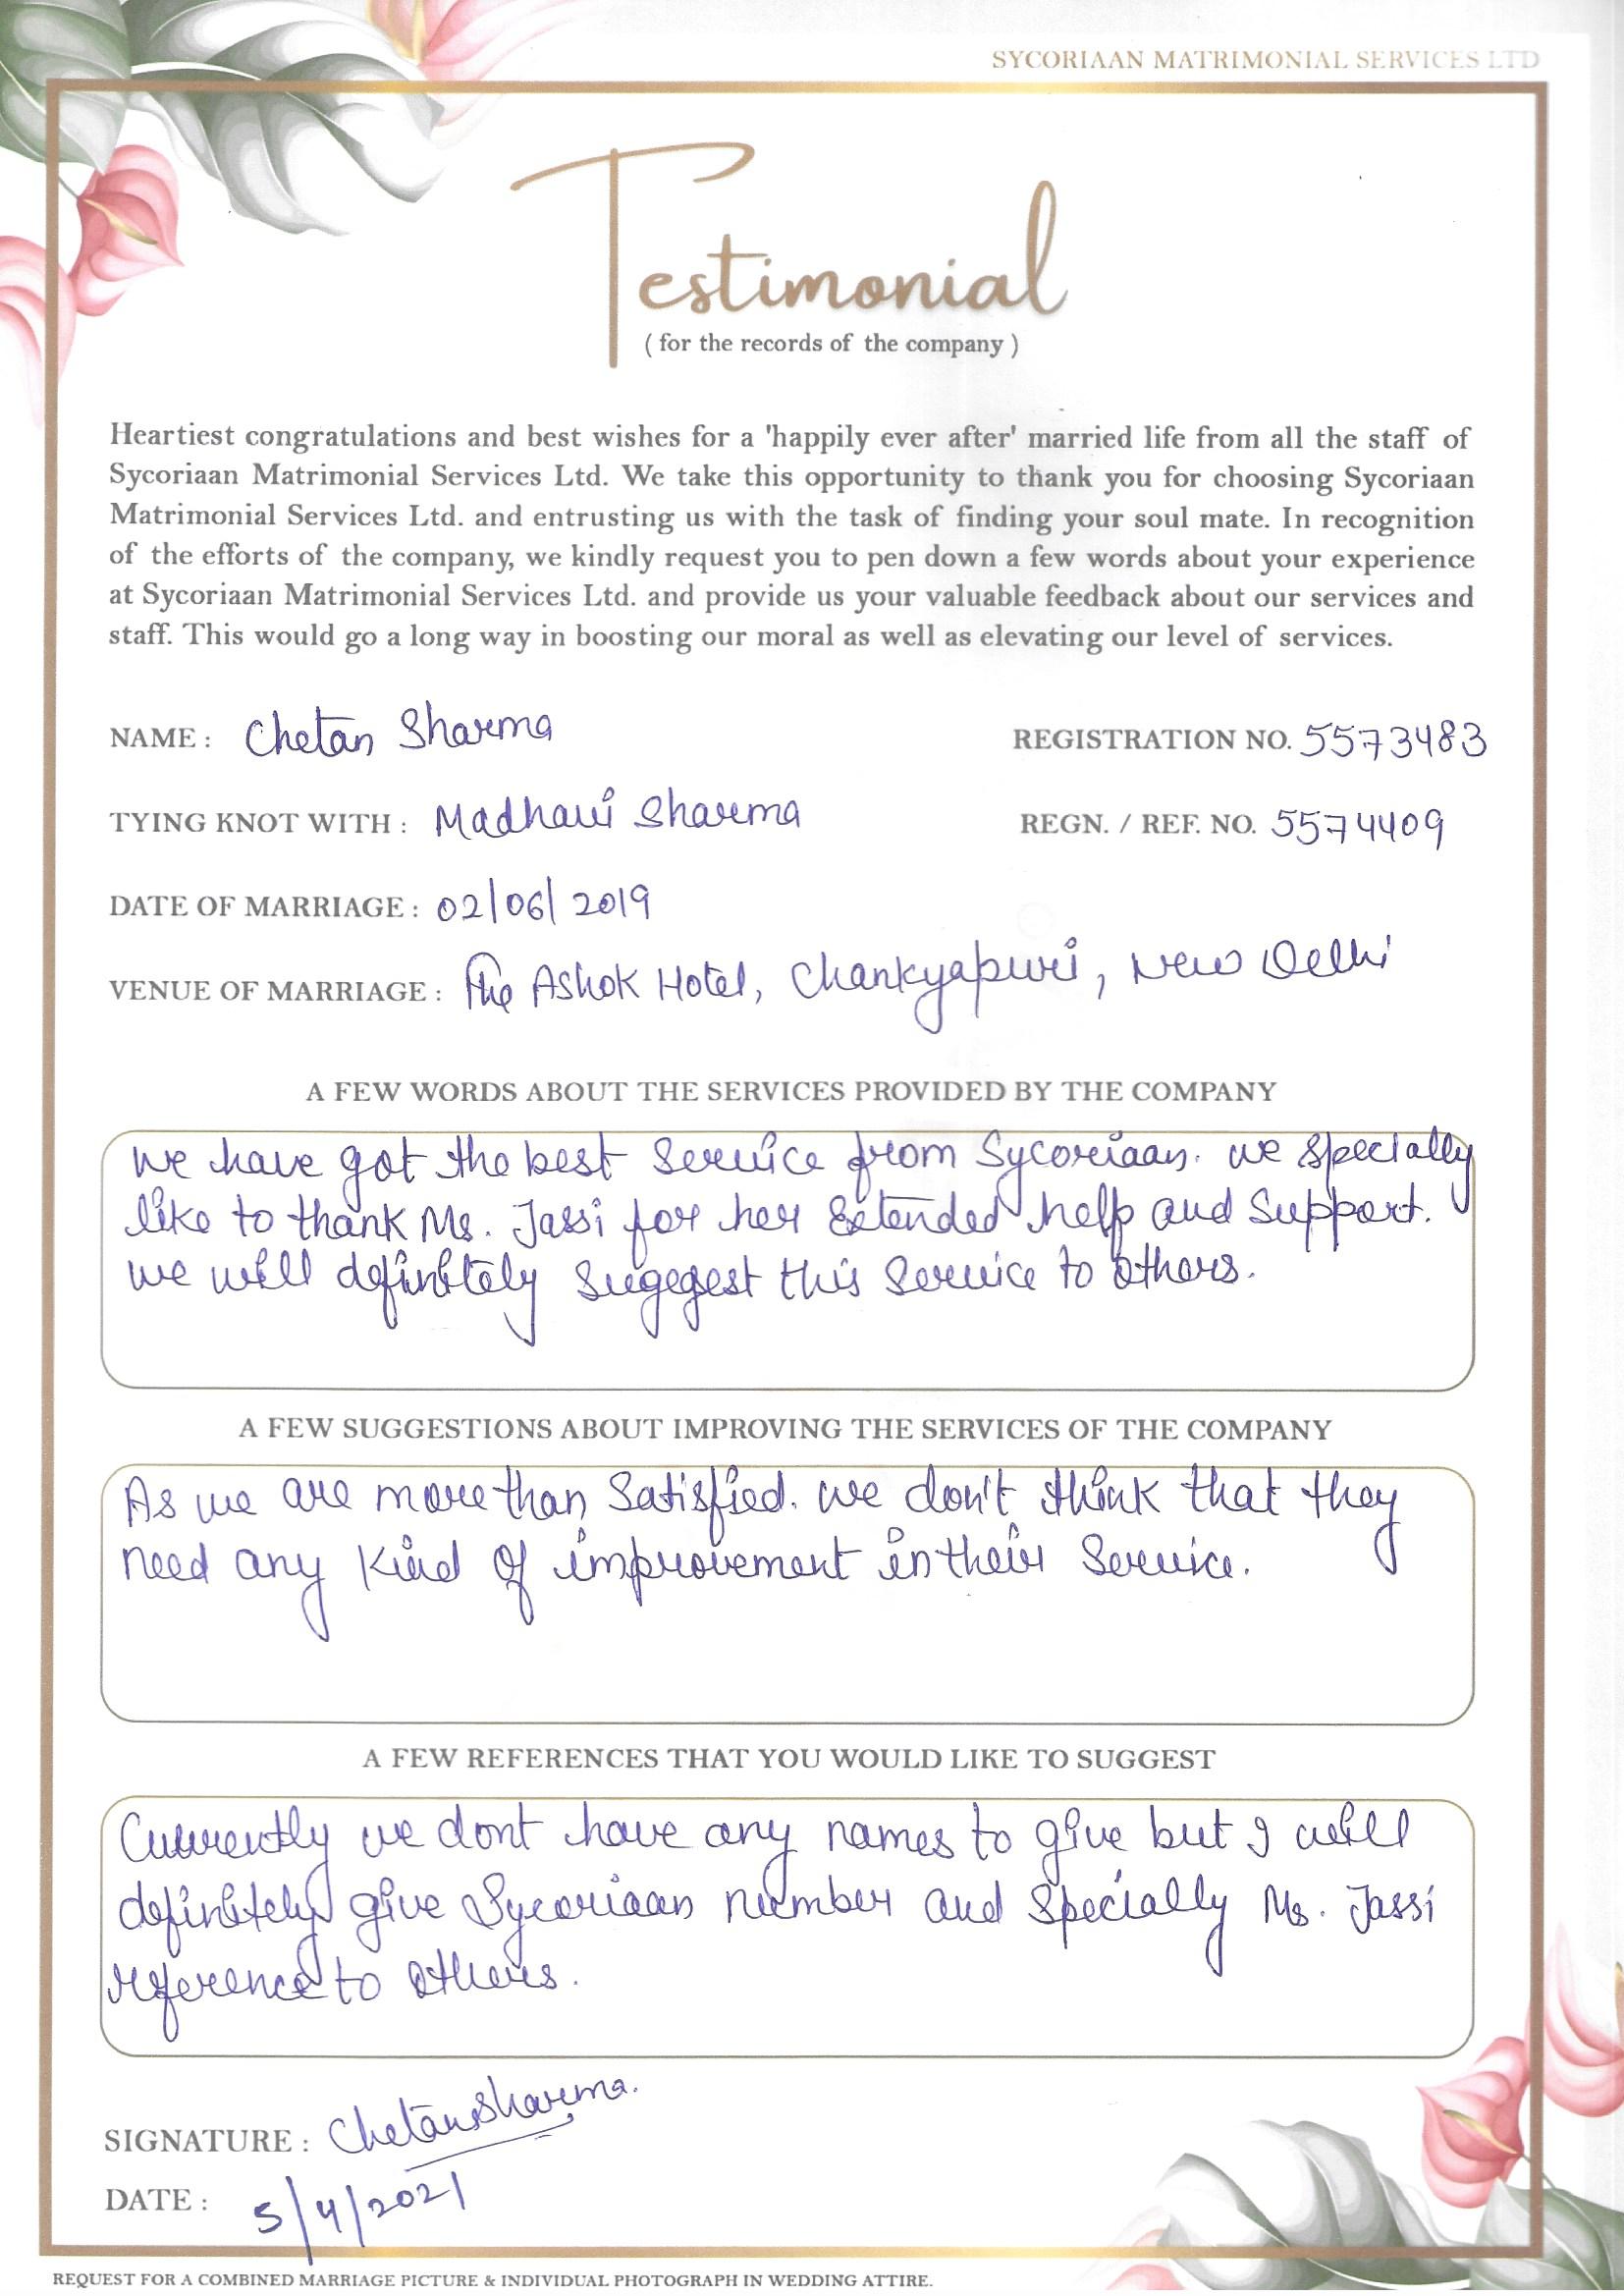 SYCORIAAN MATRIMONIAL SERVICES LTD
Testimonial
( for the records of the company )
Heartiest congratulations and best wishes for a 'happily ever after' married life from all the staff of
Sycoriaan Matrimonial Services Ltd. We take this opportunity to thank you for choosing Sycoriaan
Matrimonial Services Ltd. and entrusting us with the task of finding your soul mate. In recognition
of the efforts of the company, we kindly request you to pen down a few words about your experience
at Sycoriaan Matrimonial Services Ltd. and provide us your valuable feedback about our services and
staff. This would go a long way in boosting our moral as well as elevating our level of services.
NAME : Chetan Sharma REGISTRATION NO. 5573483
TYING KNOT WITH : Madhavi Sharma REGN. / REF. NO. 5574409
DATE OF MARRIAGE : 02/06/2019
VENUE OF MARRIAGE : The Ashok Hotel, Chankyapuri, New Delhi
A FEW WORDS ABOUT THE SERVICES PROVIDED BY THE COMPANY
We have got the best Service from Sycoriaan. we specially
like to thank Ms. Jassi for her Extended help and Support.
we will definitely suggest this Service to others.
A FEW SUGGESTIONS ABOUT IMPROVING THE SERVICES OF THE COMPANY
As we are more than Satisfied. we don't think that they
need any kind of improvement in their Service.
A FEW REFERENCES THAT YOU WOULD LIKE TO SUGGEST
Currently we dont have any names to give but I will
definitely give Sycoriaan number and Specially Ms. Jassi
reference to others.
SIGNATURE : Chetan Sharma.
DATE : 5/4/2021
REQUEST FOR A COMBINED MARRIAGE PICTURE & INDIVIDUAL PHOTOGRAPH IN WEDDING ATTIRE.